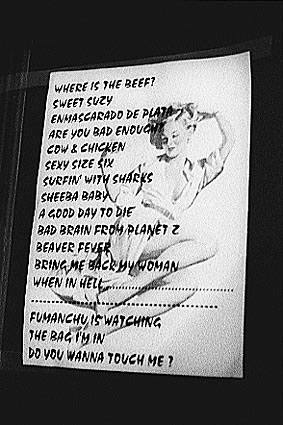 WHERE IS THE BEEF?
SWEET SUZY
ENMASCARADO DE PLATA
ARE YOU BAD ENOUGH?
COW & CHICKEN
SEXY SIZE SIX
SURFIN' WITH SHARKS
SHEEBA BABY
A GOOD DAY TO DIE
BAD BRAIN FROM PLANET Z
BEAVER FEVER
BRING ME BACK MY WOMAN
WHEN IN HELL................................
..............................................
FUMANCHU IS WATCHING
THE BAG I'M IN
DO YOU WANNA TOUCH ME ?